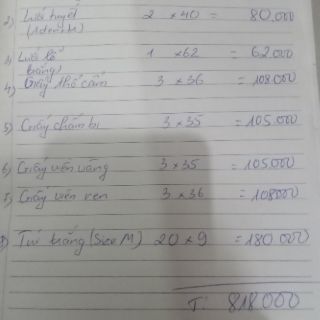 2) Lưới tuyết 2 × 40 = 80.000
3) Lưới 1 × 62 = 62.000
trắng)
4) Giấy thổ cẩm 3 × 36 = 108.000
5) Giấy chấm bi 3 × 35 = 105.000
6) Giấy viền vàng 3 × 35 = 105.000
Giấy viền ren 3 × 36 = 108000
Túi trắng (Size M) 20 × 9 = 180.000
T: 818.000